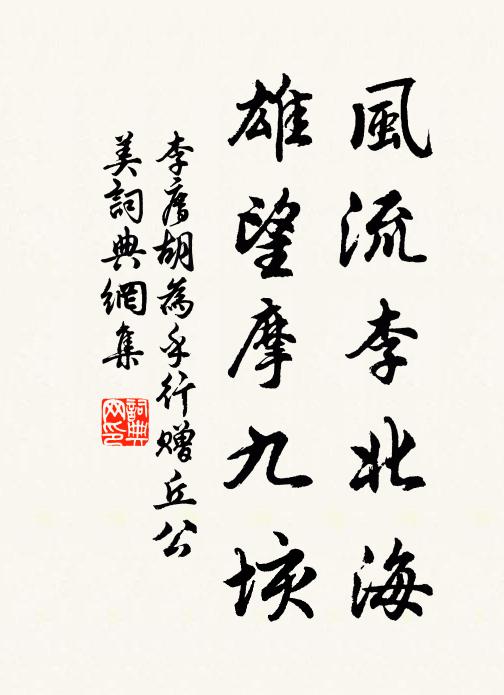 風流李北海
雄望摩九垓
李廌胡為乎行贈丘公
美詞典網集
詞典網印